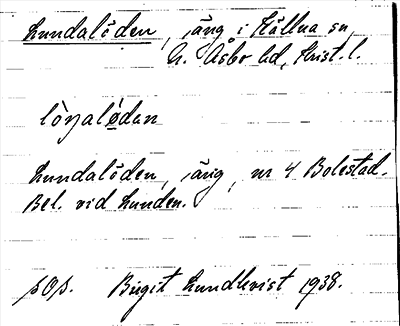 Lundalöden, äng i Källna sn,
N. Åsbo hd, Krist. l.
Lundalöden, äng, nr 4 Bolestad.
Bel. vid Lunden.
Birgit Lundkvist 1938.